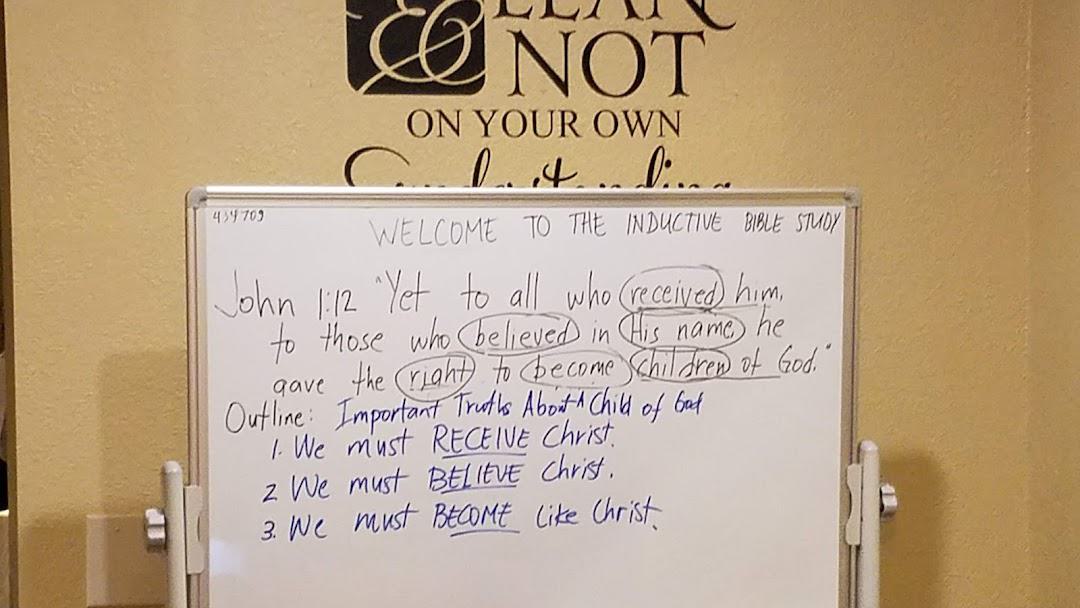 & LEAN
NOT
ON YOUR OWN
Understanding
434709
WELCOME TO THE INDUCTIVE BIBLE STUDY
John 1:12 "Yet to all who received him,
to those who believed in His name he
gave the right to become children of God."
Outline: Important Truths About A Child of God
1. We must RECEIVE Christ.
2 We must BELIEVE Christ.
3. We must BECOME Like Christ.